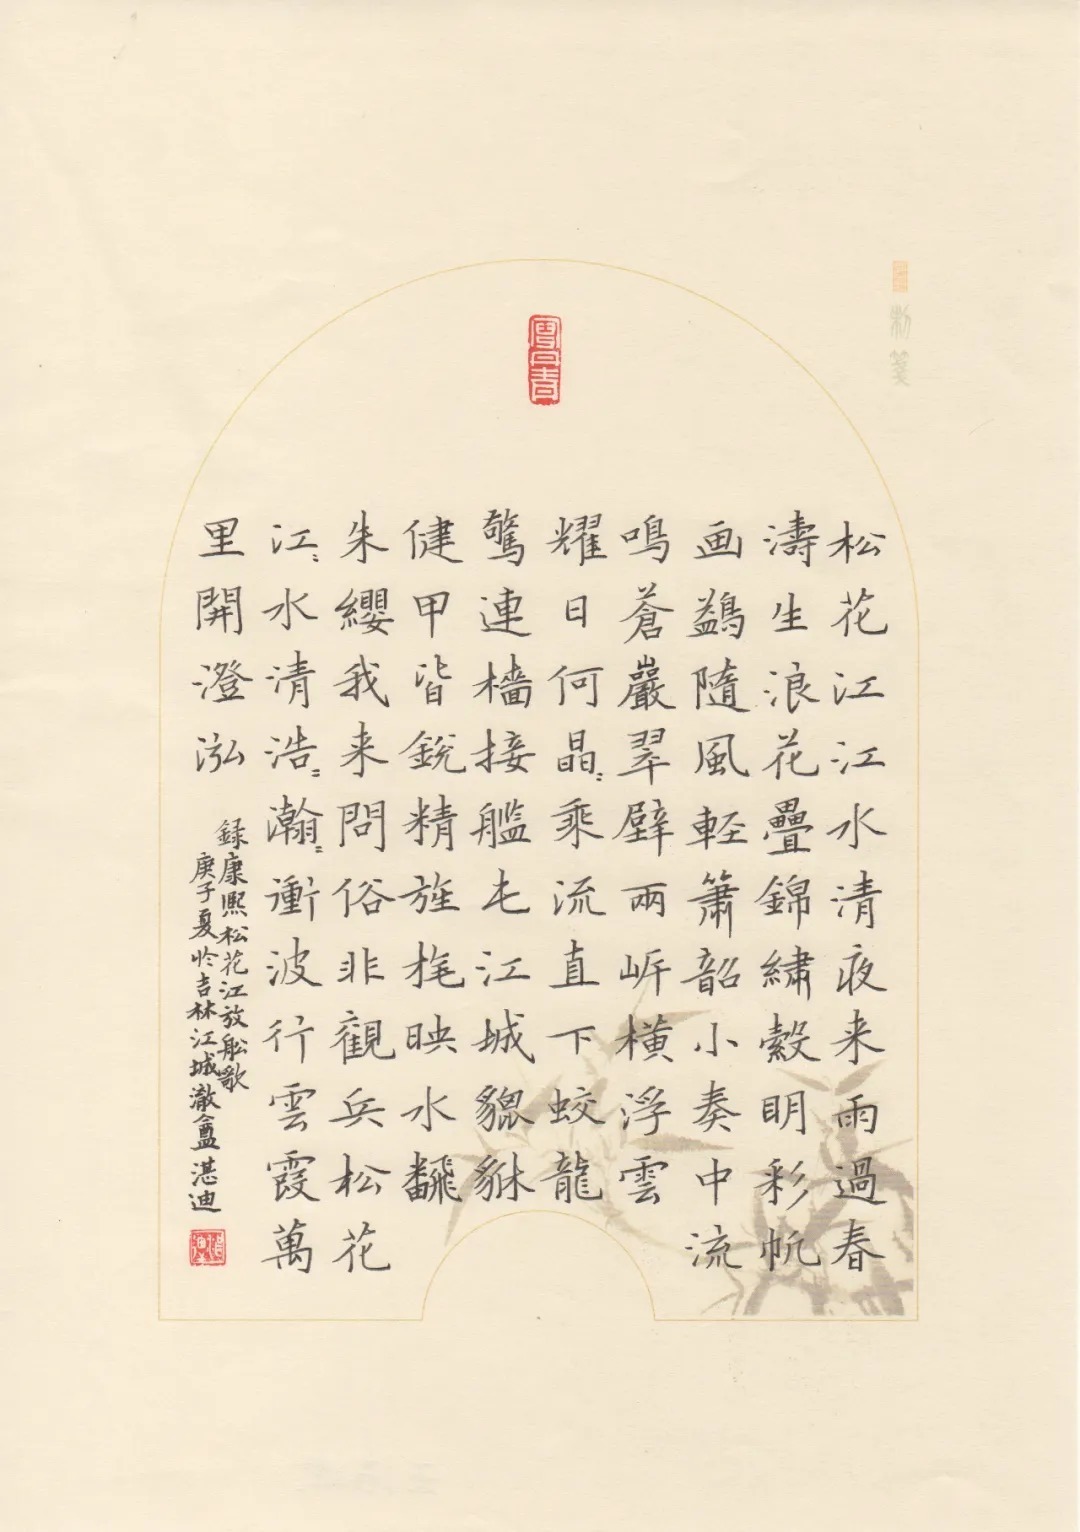 松花江江水清夜来雨過春
濤生浪花疊錦繡縠明彩帆
画鷁隨風輕簫韶小奏中流
鳴蒼巖翠壁兩岍橫浮雲
耀日何晶〻乘流直下蛟龍
驚連檣接艦屯江城貔貅
健甲皆銳精旌旄映水飜
朱纓我来問俗非觀兵松花
江〻水清浩〻瀚〻衝波行雲霞萬
里開澄泓
録康熙松花江放船歌
庚子夏於吉林江城澈盦湛迪
制箋